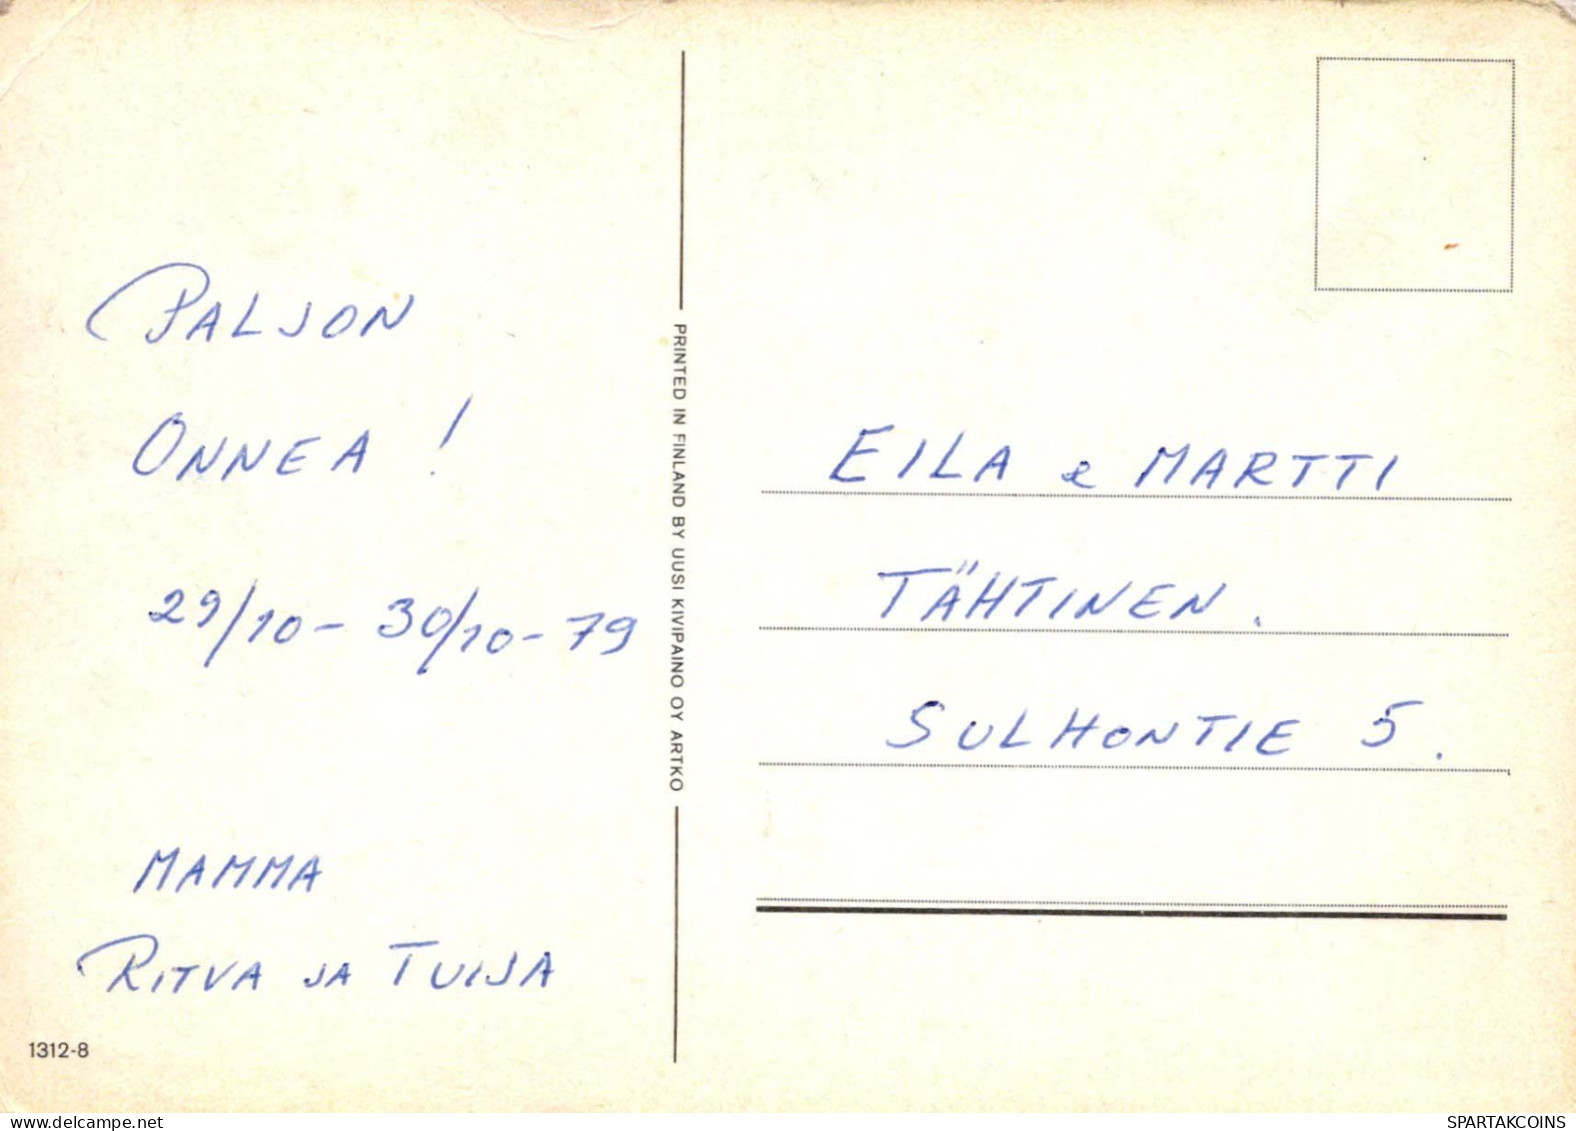 PALJON
ONNEA !
29/10 - 30/10 - 79
MAMMA
RITVA JA TUIJA
1312-8
PRINTED IN FINLAND BY UUSI KIVIPAINO OY ARTKO
EILA & MARTTI
TÄHTINEN.
SULHONTIE 5.
www.delcampe.net
SPARTAKCOINS